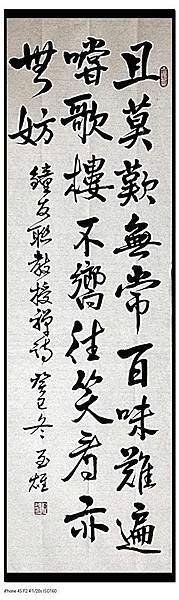 且莫歎無常百味難遍
嚐歌樓不嚮往笑看亦
無妨
鐘友聯教授禪詩 癸巳冬 至煌
iPhone 4S F2.4 1/20s ISO160